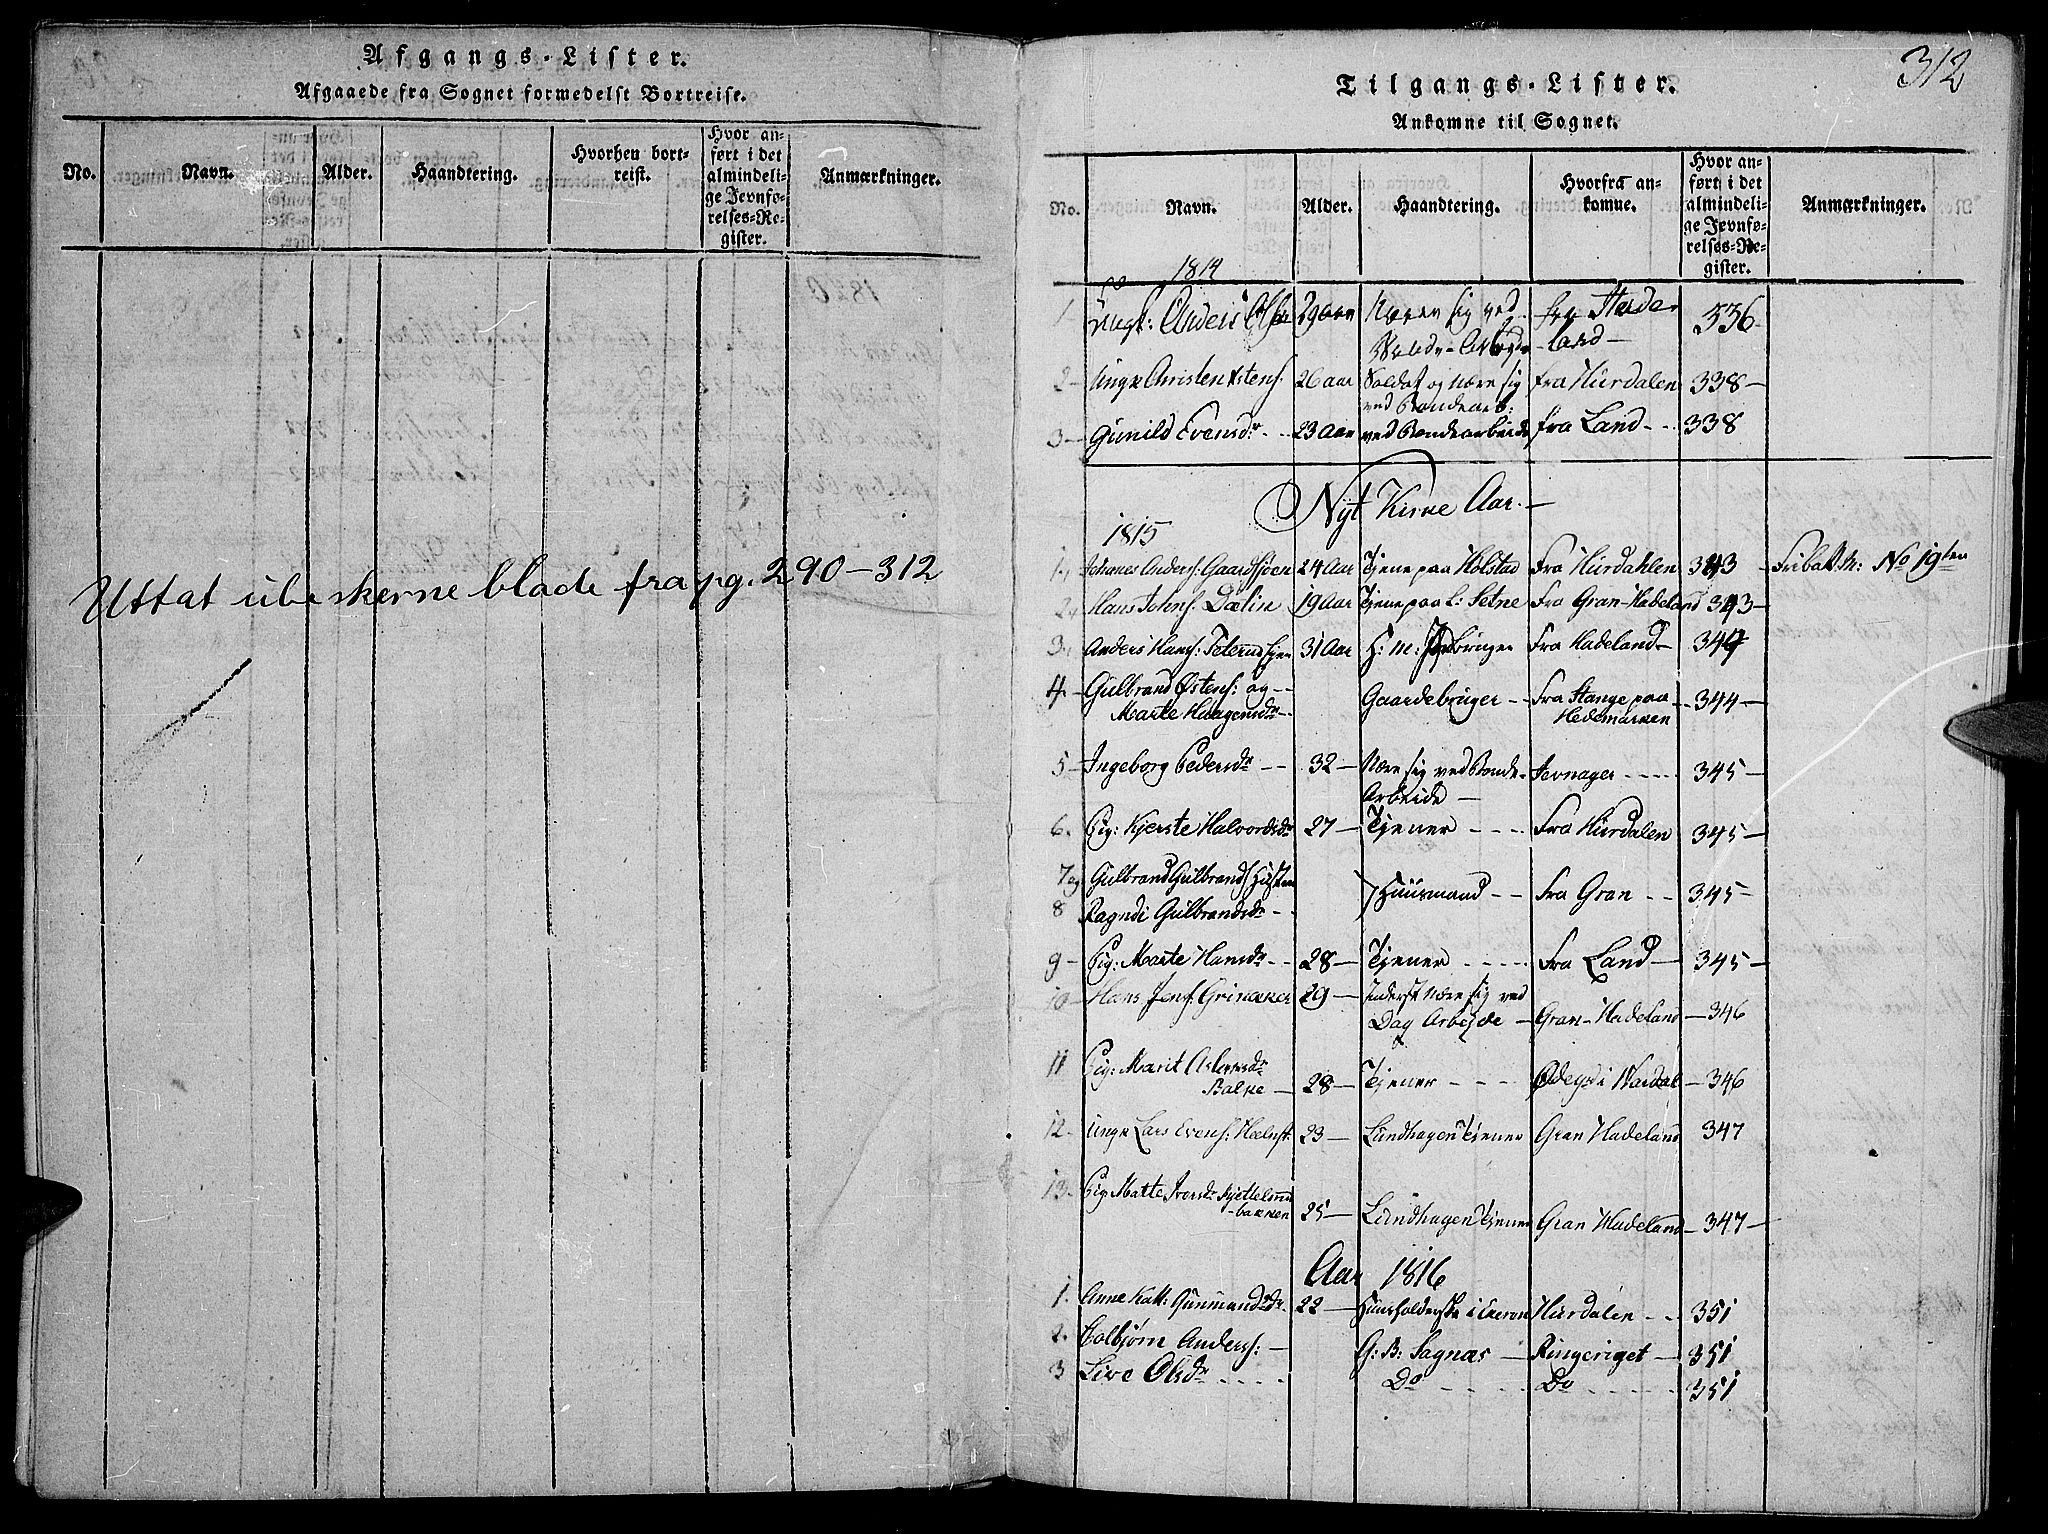 Afgangs-Lister.
Afgaaede fra Sognet formedelst Bortreise.
No. Navn. Alder. Haandtering. Hvorhen bort-reist. Hvor an-ført i det almindeli-ge Jevnfø-relses-Re-gister. Anmærkninger.
Uttat ubeskrevne blade fra pg. 290-312
312
Tilgangs-Lister.
Ankomne til Sognet.
No. Navn. Alder. Haandtering. Hvorfra an-komne. Hvor an-ført i det almindeli-ge Jevnfø-relses-Re-gister. Anmærkninger.
1814
1 Ungk: Anders Olsen 29 aar Nærer sig ved fra Hade- 336
Arbeyde land
2 Ungk Christen Ostens. 26 aar Soldat og nære sig fra Hurdalen 338
ved Bondearb:
3 Gunild Evensdr 23 Aar ved Bondearbeide fra Land 338
Nyt Kirke Aar.
1815
1 Johanes Anders: 24 Aar Tjene paa Holstad Fra Hurdahlen 343 No 19ten
2 Hans Johns: Dælin 19 Aar Tjene paa L: Setne Fra Gran-Hadeland 343
3 Anders Hans: 31 Aar Fra Hadeland 344
4 Gulbrand Østens: og Gaardebruger Fra Stange paa 344
Marte Haagensdr Hedemarken
5 Ingeborg Pedersdr 32 Nære sig ved Bonde- Jevnager 345
Arbeide
6. Pig: Kjerste Halvordsdr 27 Tjener Fra Hurdalen 345
7 og Gulbrand Gulbrands Huusmand Fra Gran 345
8 Ragndi Gulbrandsdr
9 Pig: Marte Hansdr 28 Tjener Fra Land 345
10 Hans Jens: Grinaker 29 Inderst nære sig ved
Dag Arbejde Gran-Hadeland 346
11 Pig: Marit
Balke 28 Tjener i Vardal 346
12. Ungk Lars Evens: 23 Lundhagen Tjener Gran Hadeland 347
13. Pig Matte Iversdr
-bakken 25 Lundhagen Tjener Gran Hadeland 347
Aar 1816
1. Anne Katt: 22 Huusholderske i Hurdalen 351
2. Colbjørn Anders: G: B: Sagnæs Ringeriget 351
3 Live Olsdr Do Do 351